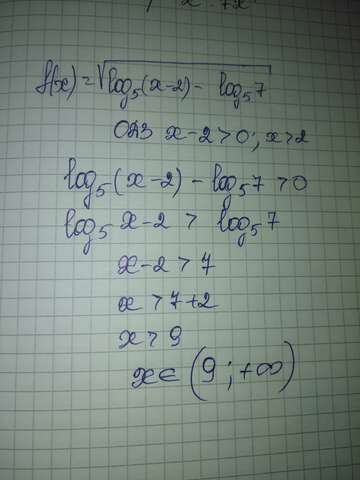 f(x) = √log₅(x-2) - log₅7
ОДЗ x-2>0; x>2
log₅(x-2) - log₅7 >0
log₅ x-2 > log₅7
x-2>7
x>7+2
x>9
x∈(9;+∞)